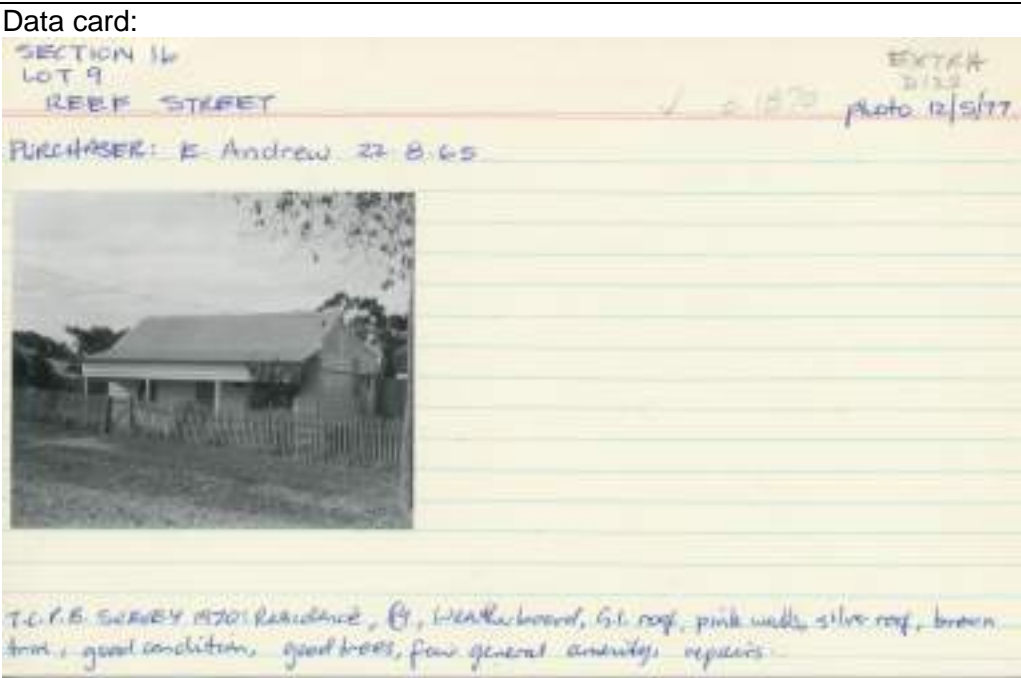 Data card:
SECTION 16
LOT 9
REEF STREET
EXTRA
D122
✓ c 1870
photo 12/5/77
PURCHASER: E Andrew 22.8.65
T.C.P.B. SURVEY 1970: Residence, Weatherboard, G.I. roof, pink walls, silver roof, brown
trim, good condition, good trees, fair general amenity, repairs